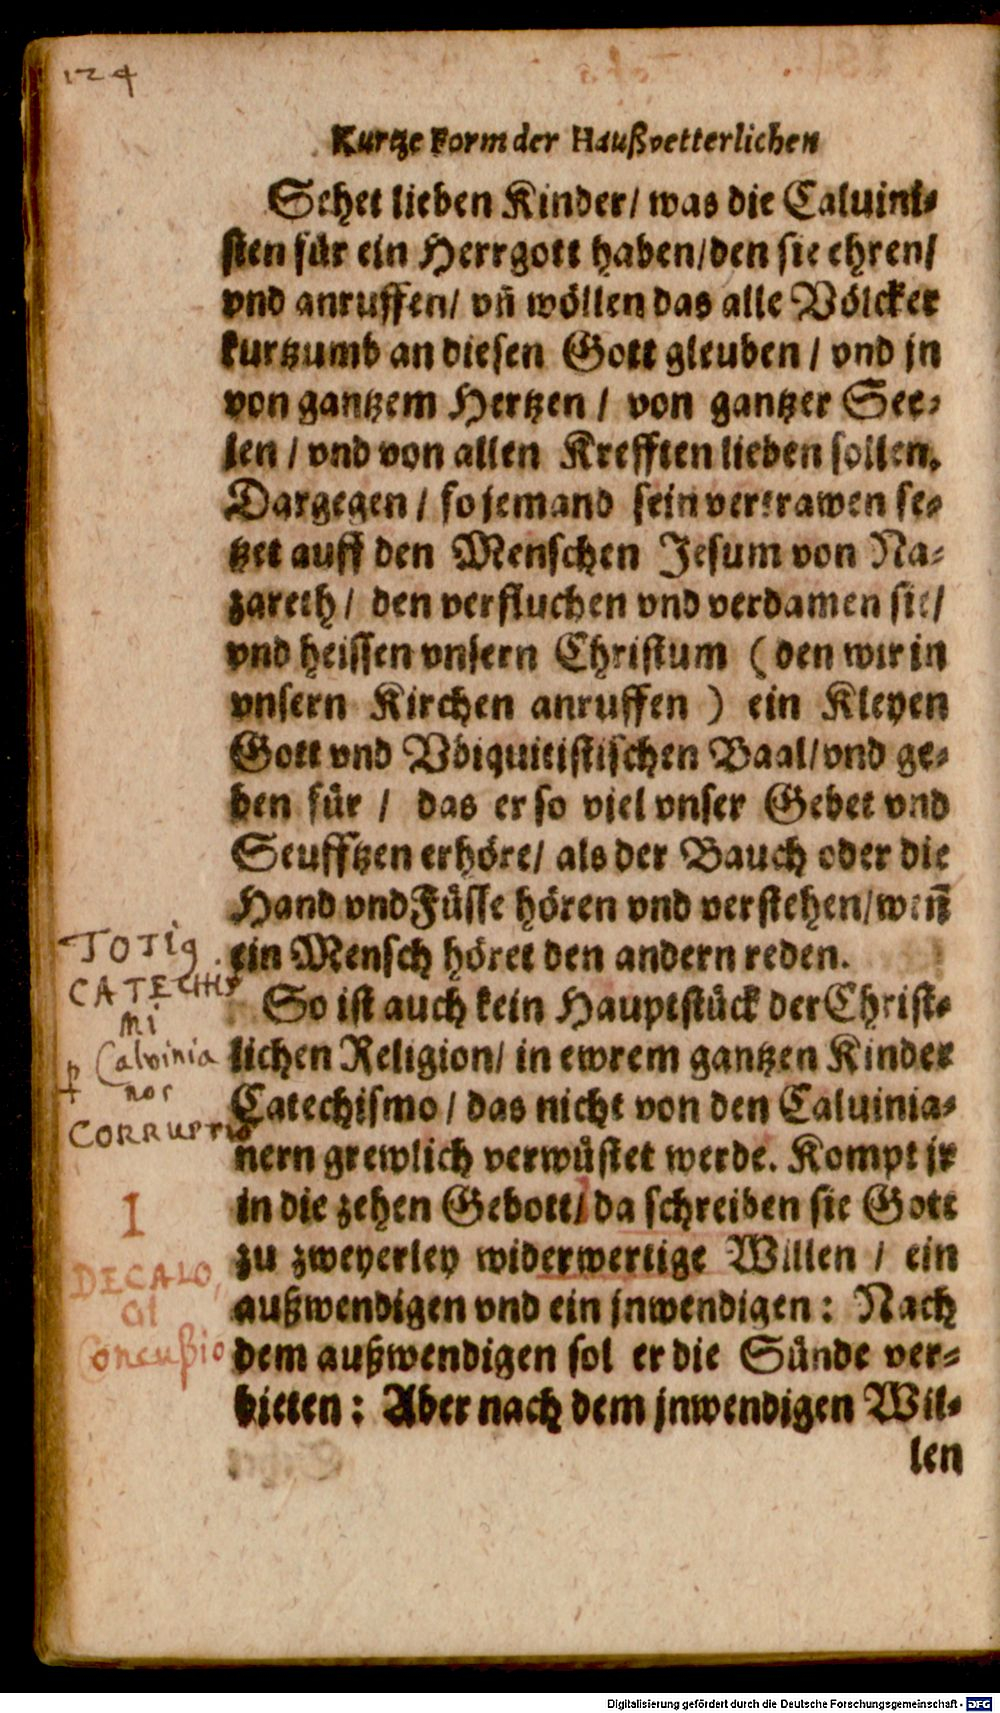 124
Kurtze Form der Haußvetterlichen
Sehet lieben Kinder/ was die Caluini⸗
sten für ein Herrgott haben/den sie ehren/
vnd anruffen/ vn̄ wöllen das alle Völcker
kurtzumb an diesen Gott gleuben / vnd jn
von gantzem Hertzen / von gantzer See⸗
len / vnd von allen Krefften lieben sollen.
Dargegen / so jemand sein vertrawen se⸗
tzet auff den Menschen Jesum von Na⸗
zareth/ den verfluchen vnd verdamen sie/
vnd heissen vnsern Christum (den wir in
vnsern Kirchen anruffen) ein Kleyen
Gott vnd Vbiquitistischen Baal/vnd ge⸗
ben für / das er so viel vnser Gebet vnd
Seufftzen erhöre/ als der Bauch oder die
Hand vnd Füsse hören vnd verstehen/wen̄
ein Mensch höret den andern reden.
So ist auch kein Hauptstück der Christ⸗
lichen Religion/ in ewrem gantzen Kinder
Catechismo / das nicht von den Caluinia⸗
nern grewlich verwüstet werde. Kompt jr
in die zehen Gebott/ da schreiben sie Gott
zu zweyerley widerwertige Willen / ein
außwendigen vnd ein jnwendigen: Nach
dem außwendigen sol er die Sünde ver⸗
bieten: Aber nach dem jnwendigen Wil⸗
len
CATECHIS
mi
Calvinia
nos
CORRUPTIO
I
DECALO,
GI
Digitalisierung gefördert durch die Deutsche Forschungsgemeinschaft - DFG